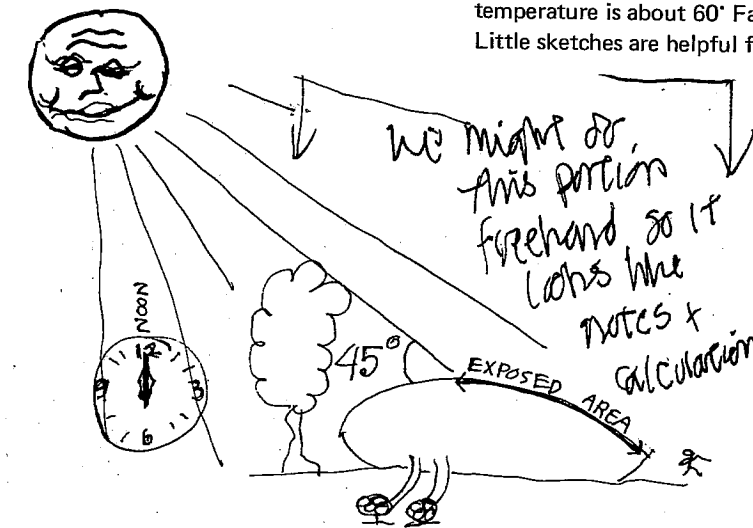 temperature is about 60° Fa
Little sketches are helpful f
we might do
this portion
freehand so it
looks like
notes +
calculation
NOON
12
3
6
9
45°
EXPOSED AREA